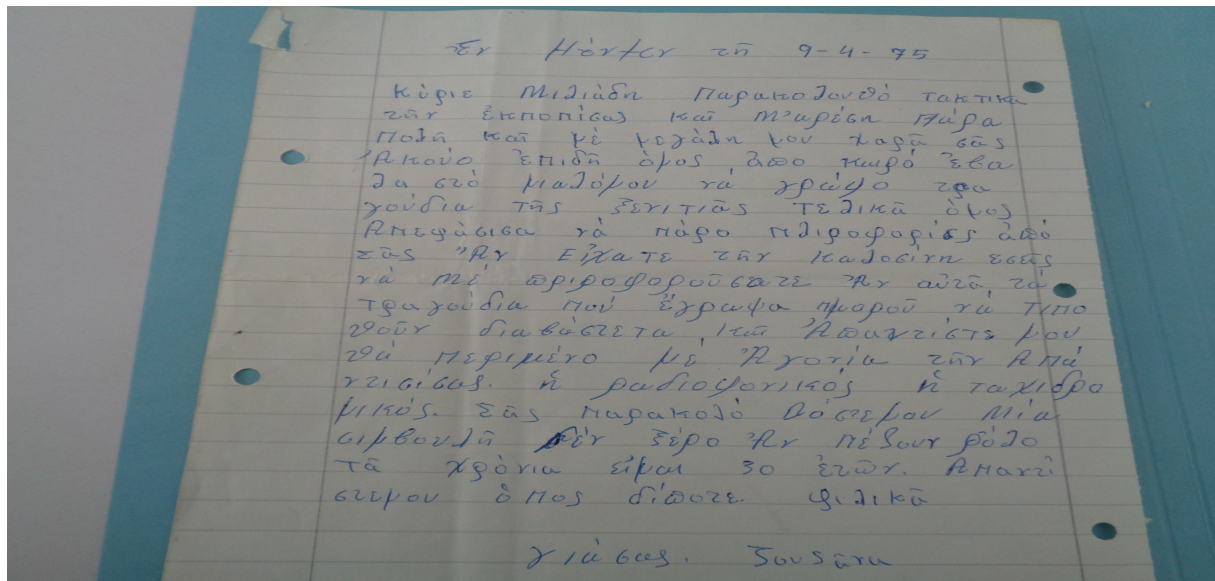 Ἐν Μόντεν τῆ 9-4-75
Κύριε Μιλιάδη Παρακολουθό τακτικα
τὴν ἐκποπίσας καὶ Μ'αρέση πάρα
πολῆ καὶ μὲ μεγάλη μου χαρᾶ σᾶς
Ἀκούο Ἐπιδῆ ὁμος ἀπο καιρό Ἐβα
λα στό μιαλόμου νά γράψο τρα
γούδια τῆς ξενιτιᾶς τελικά ὁμος
Απεφάσισα νὰ πάρο πλιροφορίες ἀπό
σᾶς Ἂν Εἶχατε τὴν καλοσίνη εσεῖς
νά μέ πριροφορούσατε Ἂν αὐτά τά
τραγούδια πού ἔγραψα μποροῦ νὰ τιπο
θοῦν διαβάστετα καὶ Ἀπαντίστε μου
θά περιμένο μέ Ἀγονία τὴν Απά
ντισίσας. ἤ ραδιοφονικός ἤ ταχιδρο
μικός. Σᾶς παρακολό Δόστεμου Μία
σιμβουλή δέν ξέρο Ἂν πέζουν ρόλο
τὰ χρόνια εἶμαι 30 ἐτῶν. Απαντί
στεμου ὁπος δίποτε. φιλικά
γιάσας. Σουζάνα